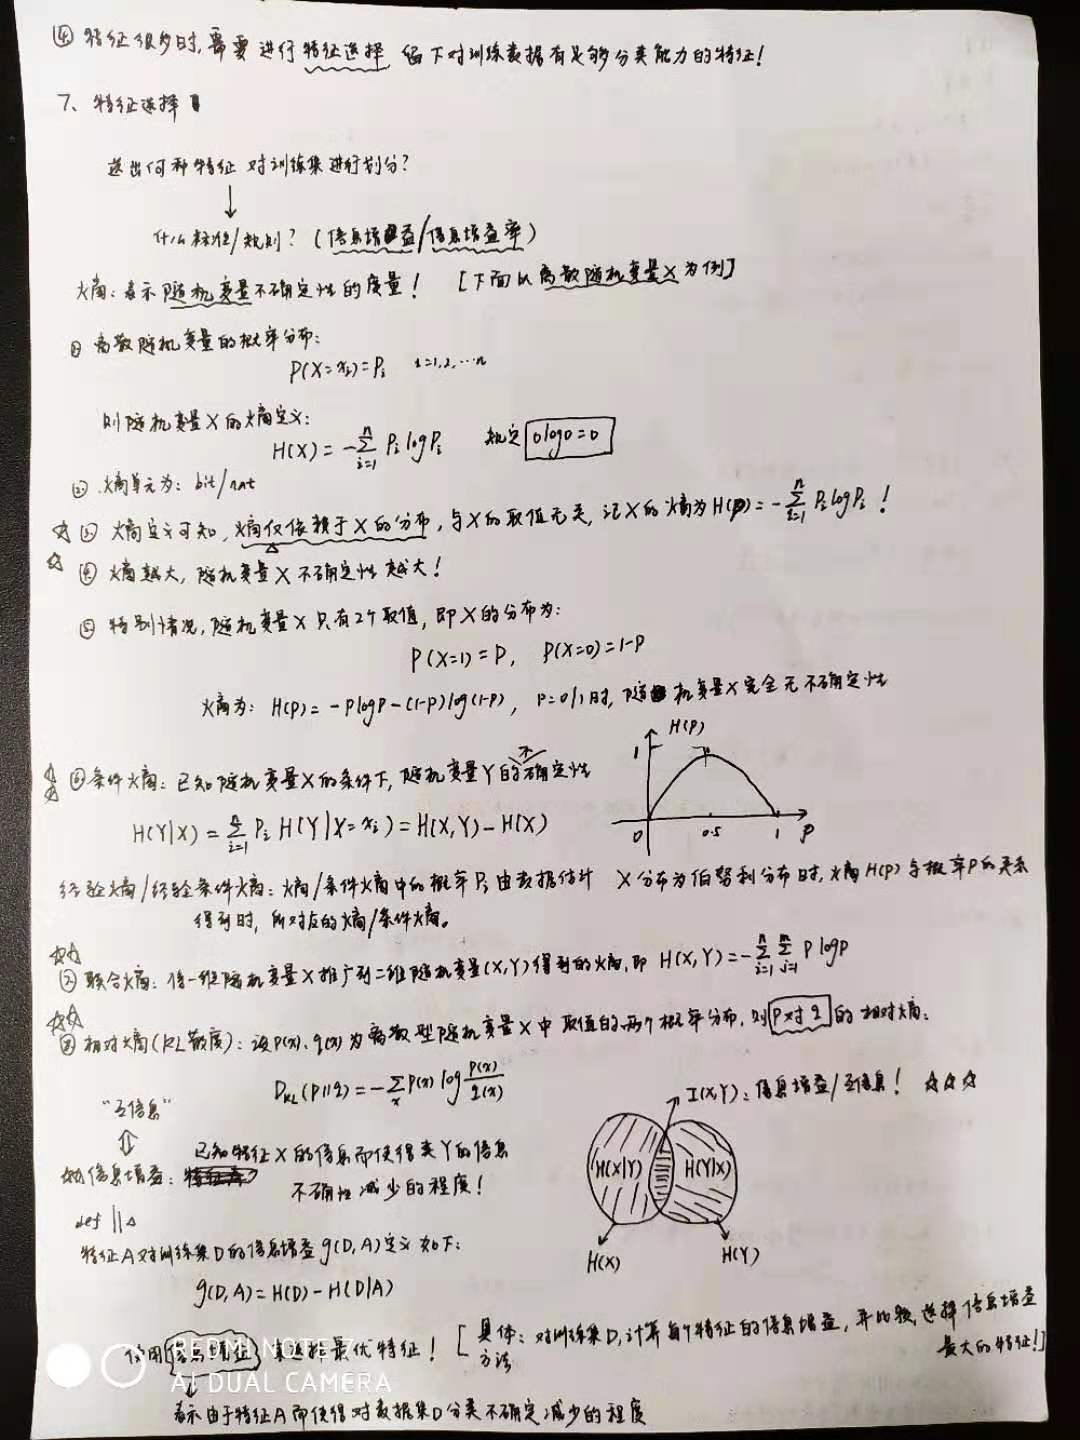 ④ 特征很多时,需要进行特征选择 留下对训练数据有足够分类能力的特征!
7、特征选择
选出何种特征对训练集进行划分?
什么标准/规则?(信息增益/信息增益率)
熵:表示随机变量不确定性的度量! [下面以离散随机变量X为例]
① 离散随机变量的概率分布:
P(X=xᵢ)=Pᵢ i=1,2,…n
则随机变量X的熵定义:
H(X)=-∑ⁿᵢ₌₁ Pᵢ log Pᵢ 规定 0log0=0
② 熵单元为:bit/nat
☆ ③ 熵定义可知,熵仅依赖于X的分布,与X的取值无关,记X的熵为H(P)=-∑ⁿᵢ₌₁ Pᵢ log Pᵢ!
☆ ④ 熵越大,随机变量X不确定性越大!
⑤ 特别情况,随机变量X只有2个取值,即X的分布为:
P(X=1)=P, P(X=0)=1-P
熵为:H(P)=-PlogP-(1-P)log(1-P), P=0/1时,随机变量X完全无不确定性
H(P)
1
0 0.5 1 P
☆☆ ⑥ 条件熵:已知随机变量X的条件下,随机变量Y的不确定性
H(Y|X)=∑ⁿᵢ₌₁ Pᵢ H(Y|X=xᵢ)=H(X,Y)-H(X)
X分布为伯努利分布时,熵H(P)与概率P的关系
经验熵/经验条件熵:熵/条件熵中的概率Pᵢ由数据估计
得到时,所对应的熵/条件熵。
☆☆ ⑦ 联合熵:将一维随机变量X推广到二维随机变量(X,Y)得到的熵,即 H(X,Y)=-∑ⁿᵢ₌₁∑ᵐⱼ₌₁ P logP
☆☆ ⑧ 相对熵(KL散度):设p(x)、q(x)为离散型随机变量X中取值的两个概率分布,则 P对q 的相对熵:
D_KL(P||q)=-∑ₓ p(x) log p(x)/q(x)
I(X,Y):信息增益/互信息! ☆☆☆
H(X|Y) H(Y|X)
H(X) H(Y)
"互信息"
信息增益:已知特征X的信息而使得类Y的信息
不确性减少的程度!
def
特征A对训练集D的信息增益g(D,A)定义如下:
g(D,A)=H(D)-H(D|A)
使用信息增益来选择最优特征! [具体方法:对训练集D,计算每个特征的信息增益,并比较,选择信息增益
最大的特征!]
表示由于特征A而使得对数据集D分类不确定减少的程度
REDMI NOTE 7
AI DUAL CAMERA